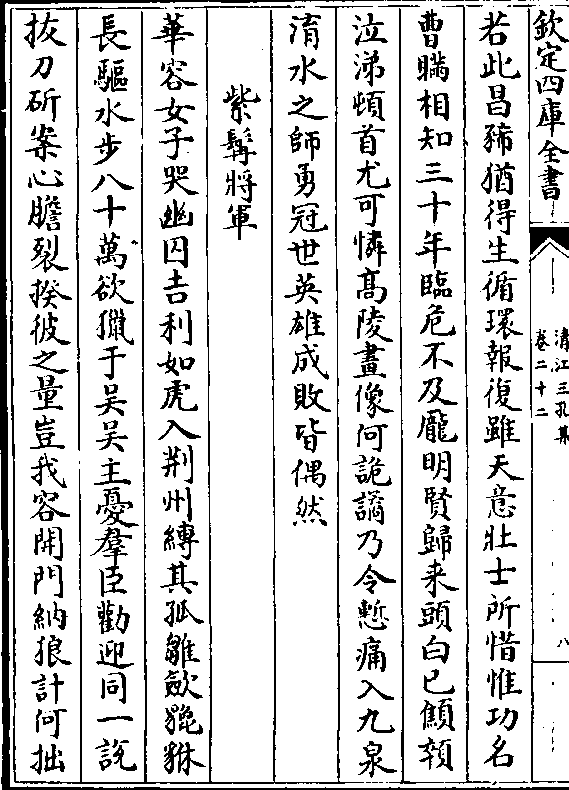 欽定四庫全書
清江三孔集
卷二十二
八
若此昌豨猶得生循環報復雖天意壯士所惜惟功名
曹瞞相知三十年臨危不及龐明賢歸来頭白已顦顇
泣涕頓首尤可憐髙陵畫像何詭譎乃令慙痛入九泉
淯水之師勇冠世英雄成敗皆偶然
紫髯將軍
華容女子哭幽囚吉利如虎入荆州縛其孤雛歛貔貅
長驅水步八十萬欲獵于吴吴主憂羣臣勸迎同一說
抜刀斫案心膽裂揆彼之量豈我容開門納狼計何拙